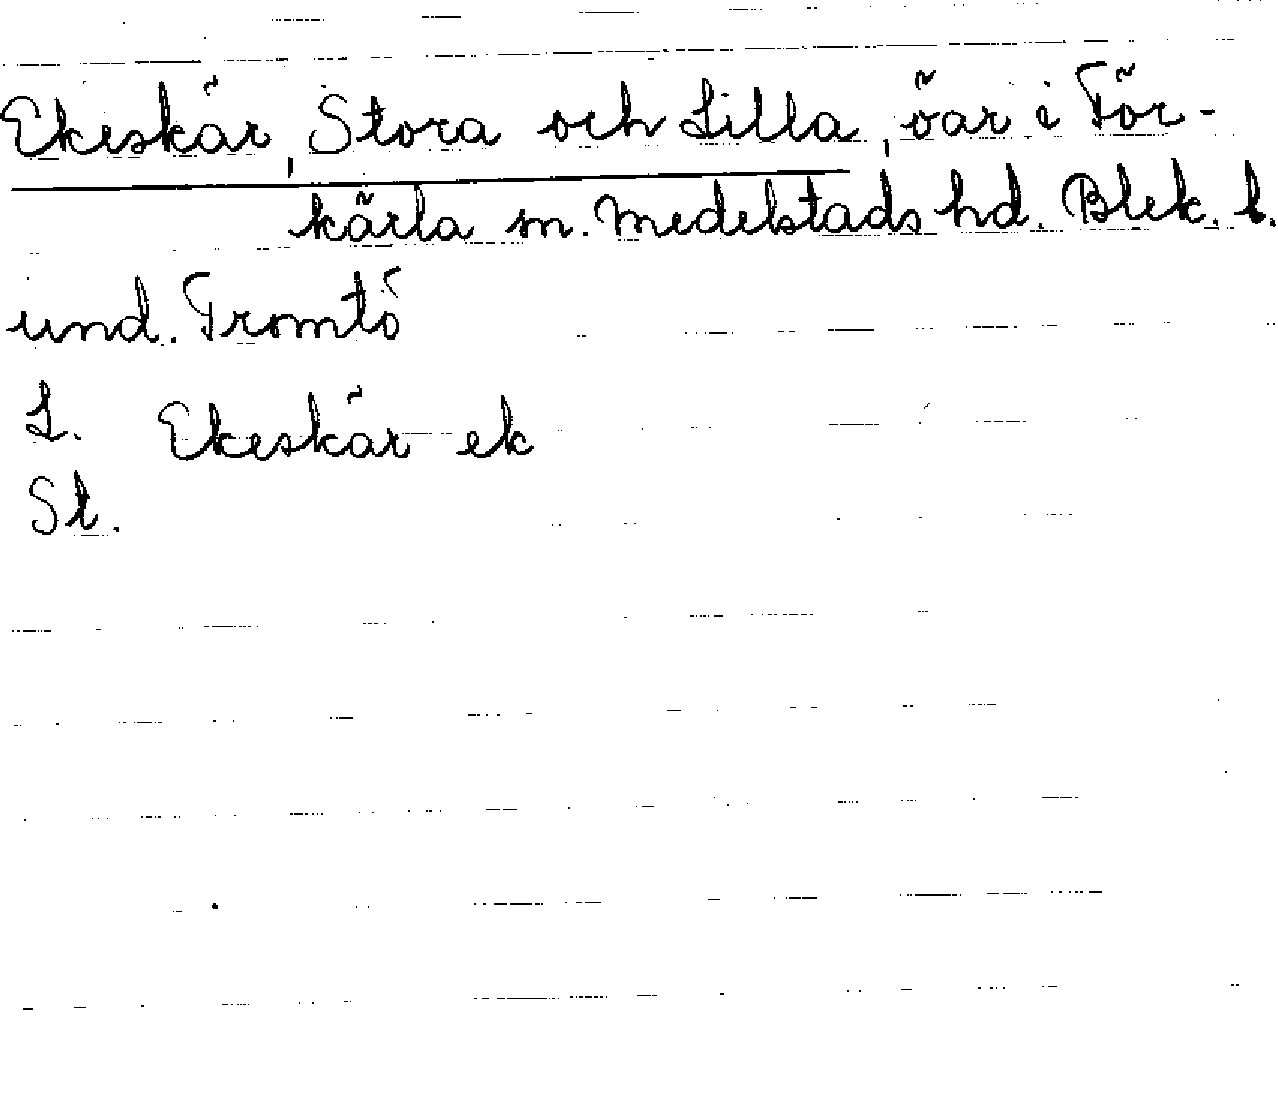 Ekeskär, Stora och Lilla, öar i För-
kärla sn. Medelstads hd. Blek. l.
und. Tromtö
L. Ekeskär ek
St.